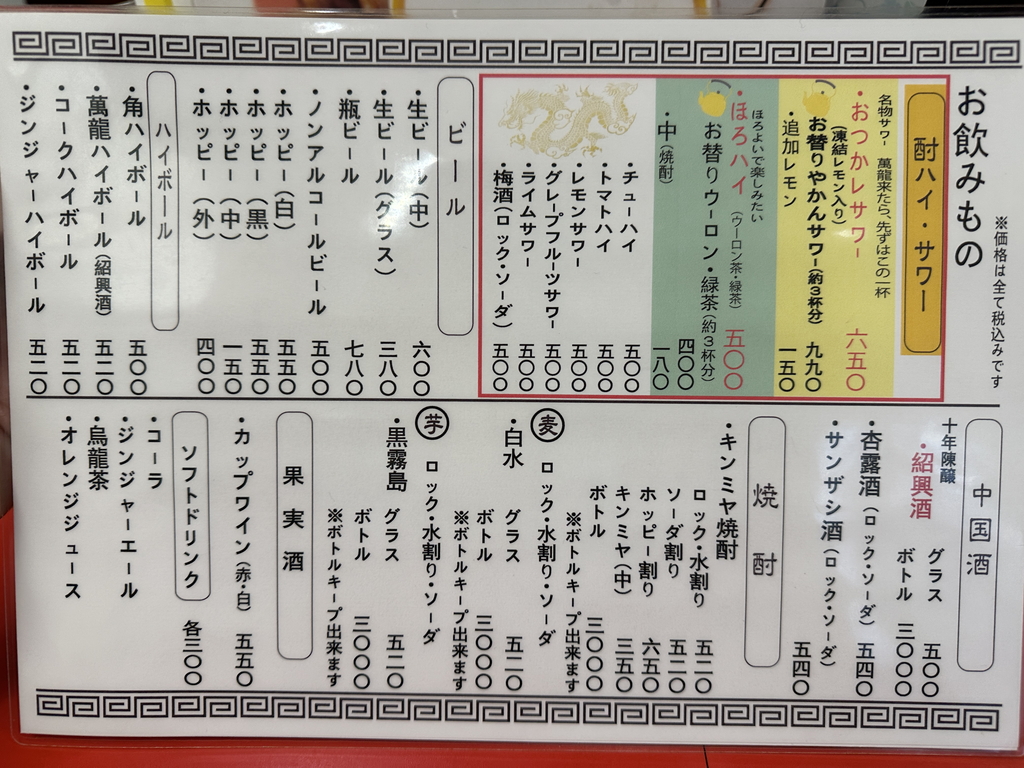 お飲みもの
※価格は全て税込みです
酎ハイ・サワー
名物サワー 萬龍来たら、先ずはこの一杯
・おつかレサワー 六五〇
(凍結レモン入り)
お替りやかんサワー(約3杯分) 九九〇
・追加レモン 一五〇
ほろよいで楽しみたい
・ほろハイ(ウーロン茶・緑茶) 五〇〇
お替りウーロン・緑茶(約3杯分) 四〇〇
・中(焼酎) 一八〇
・チューハイ 五〇〇
・トマトハイ 五〇〇
・レモンサワー 五〇〇
・グレープフルーツサワー 五〇〇
・ライムサワー 五〇〇
・梅酒(ロック・ソーダ) 五〇〇
ビール
・生ビール(中) 六〇〇
・生ビール(グラス) 三八〇
・瓶ビール 七八〇
・ノンアルコールビール 五〇〇
・ホッピー(白) 五五〇
・ホッピー(黒) 五五〇
・ホッピー(中) 一五〇
・ホッピー(外) 四〇〇
ハイボール
・角ハイボール 五〇〇
・萬龍ハイボール(紹興酒) 五二〇
・コークハイボール 五二〇
・ジンジャーハイボール 五二〇
中国酒
十年陳醸
・紹興酒 グラス 五〇〇
ボトル 三〇〇〇
・杏露酒(ロック・ソーダ) 五四〇
・サンザシ酒(ロック・ソーダ) 五四〇
焼酎
・キンミヤ焼酎
ロック・水割り 五二〇
ソーダ割り 五二〇
ホッピー割り 六五〇
キンミヤ(中) 三五〇
ボトル 三〇〇〇
※ボトルキープ出来ます
麦 ロック・水割り・ソーダ
・白水 グラス 五二〇
ボトル 三〇〇〇
※ボトルキープ出来ます
芋 ロック・水割り・ソーダ
・黒霧島 グラス 五二〇
ボトル 三〇〇〇
※ボトルキープ出来ます
果実酒
・カップワイン(赤・白) 五五〇
ソフトドリンク 各三〇〇
・コーラ
・ジンジャーエール
・烏龍茶
・オレンジジュース